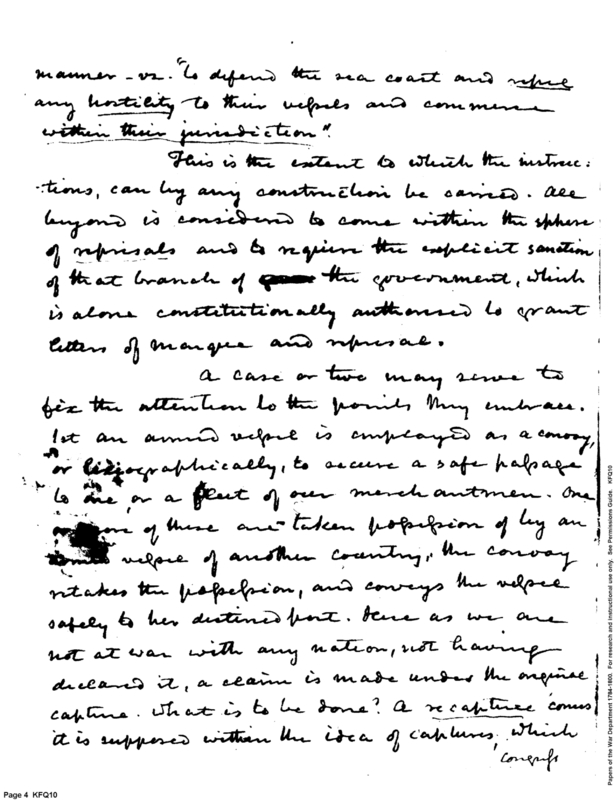 manner - vz. "to defend the sea coast and repel
any hostility to their vessels and commerce
within their jurisdiction".
This is the extent to which the instruc:
:tions, can by any construction be carried. All
beyond is considered to come within the sphere
of reprisals and to require the explicit sanction
of that branch of the government, which
is alone constitutionally authorised to grant
letters of marque and reprisal.
A case or two may serve to
fix the attention to the points they embrace.
1st an armed vessel is employed as a convoy,
or graphically, to secure a safe passage
to one, or a fleet of our merchantmen. One
or of these are taken possession of by an
armed vessel of another country, the convoy
retakes the possession, and conveys the vessel
safely to her destined port. Here as we are
not at war with any nation, not having
declared it, a claim is made under the original
capture. What is to be done? A recapture comes
it is supposed within the idea of captures, which
Congress
Page 4 KFQ10
Papers of the War Department 1784-1800. For research and instructional use only. See Permissions Guide. KFQ10